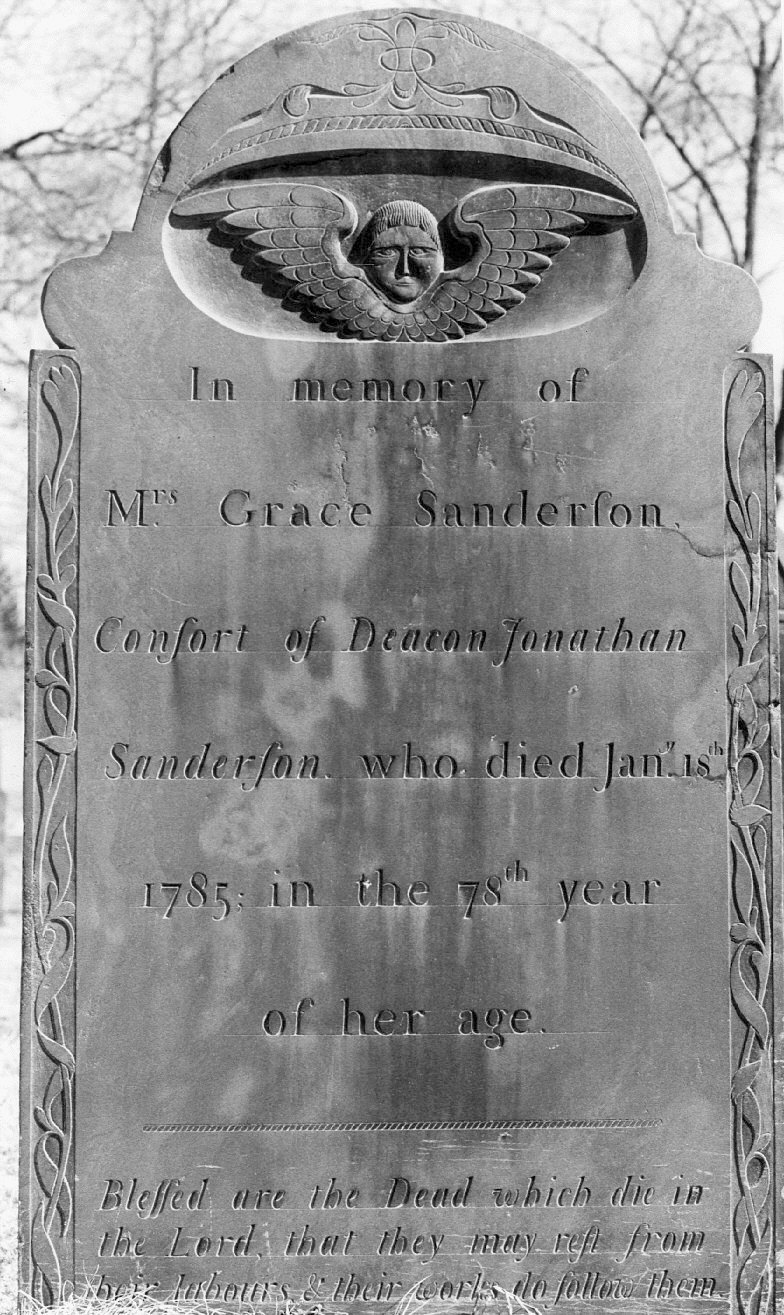 In memory of
M.rs Grace Sanderſon,
Conſort of Deacon Jonathan
Sanderſon. who died Jan.y 18th
1785; in the 78th year
of her age.
Bleſſed are the Dead which die in
the Lord, that they may reſt from
their labours & their works do follow them.